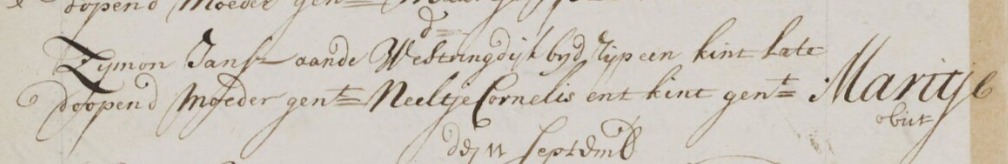 doopend Moeder gen=t
d=
Zijmon Jans= aande Westringdijk byd rijp een kint late
doopend Moeder gen=t Neeltje Cornelis ent kint gen=t Maritje
obiit
den 11 Septemb